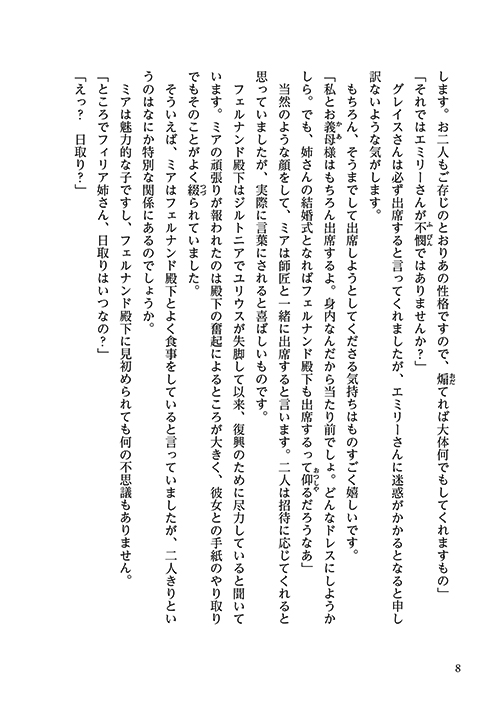 します。お二人もご存じのとおりあの性格ですので、煽てれば大体何でもしてくれますもの」
「それではエミリーさんが不憫ではありませんか？」
グレイスさんは必ず出席すると言ってくれましたが、エミリーさんに迷惑がかかるとなると申し
訳ないような気がします。
もちろん、そうまでして出席しようとしてくださる気持ちはものすごく嬉しいです。
「私とお義母様はもちろん出席するよ。身内なんだから当たり前でしょ。どんなドレスにしようか
しら。でも、姉さんの結婚式となればフェルナンド殿下も出席するって仰るだろうなあ」
当然のような顔をして、ミアは師匠と一緒に出席すると言います。二人は招待に応じてくれると
思っていましたが、実際に言葉にされると喜ばしいものです。
フェルナンド殿下はジルトニアでユリウスが失脚して以来、復興のために尽力していると聞いて
います。ミアの頑張りが報われたのは殿下の奮起によるところが大きく、彼女との手紙のやり取り
でもそのことがよく綴られていました。
そういえば、ミアはフェルナンド殿下とよく食事をしていると言っていましたが、二人きりとい
うのはなにか特別な関係にあるのでしょうか。
ミアは魅力的な子ですし、フェルナンド殿下に見初められても何の不思議もありません。
「ところでフィリア姉さん、日取りはいつなの？」
「えっ？　日取り？」
8